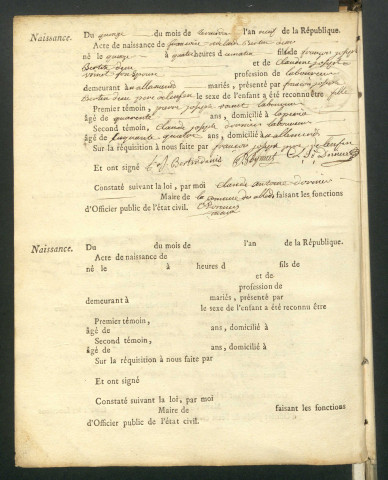 Naissance. Du quinze du mois de l'an neuf de la République.
Acte de naissance de
né le quinze à quatre heures d u matin fils de françois joseph
Bertin et de Claudine joseph
profession de laboureur
demeurant à mariés, présenté par
le sexe de l'enfant a été reconnu être fille
Premier témoin, pierre joseph laboureur
âgé de quarante ans, domicilié à
Second témoin, claude joseph laboureur
âgé de cinquante quatre ans, domicilié à
Sur la réquisition à nous faite par françois joseph père de l'enfant
Et ont signé
Constaté suivant la loi, par moi Claude antoine
Maire de la commune des faisant les fonctions
d'Officier public de l'état civil.
maire
Naissance. Du du mois de l'an de la République.
Acte de naissance de
né le à heures d fils de
et de
profession de
demeurant à mariés, présenté par
le sexe de l'enfant a été reconnu être
Premier témoin,
âgé de ans, domicilié à
Second témoin,
âgé de ans, domicilié à
Sur la réquisition à nous faite par
Et ont signé
Constaté suivant la loi, par moi
Maire de faisant les fonctions
d'Officier public de l'état civil.